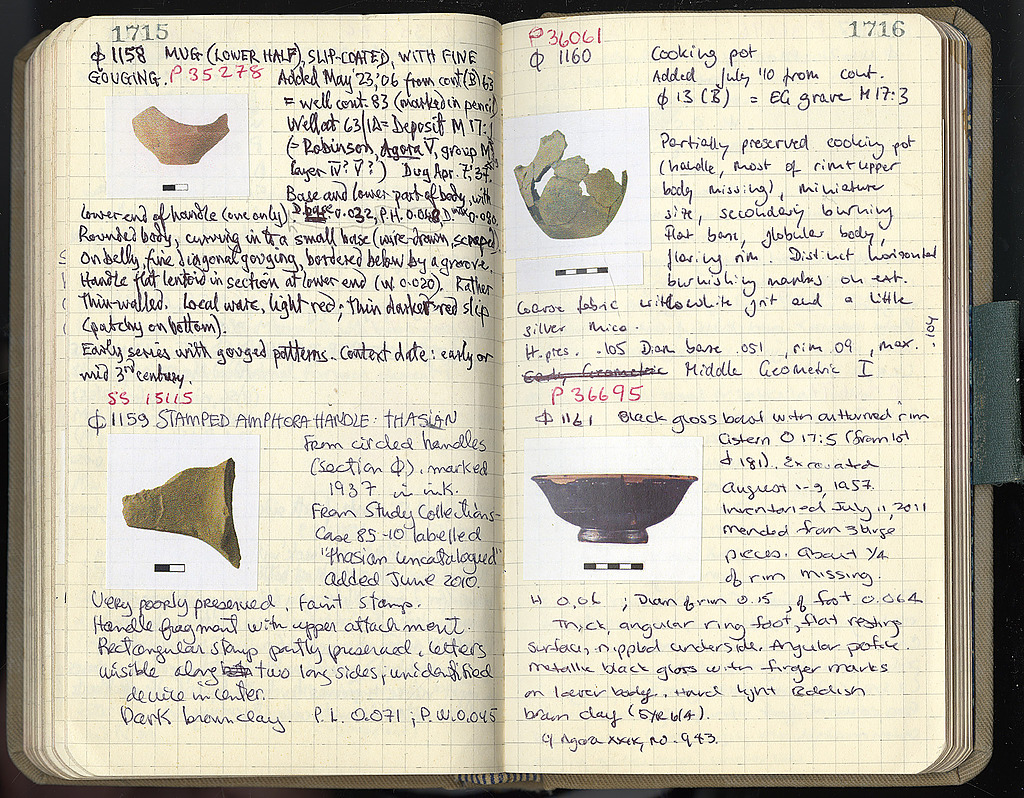 1715
Φ 1158 MUG (LOWER HALF), SLIP-COATED, WITH FINE
GOUGING. P 35278 Added May 23, '06 from cont (B) 63
= well cont. 83 (marked in pencil)
Well at 63/ΙΔ = Deposit M 17:1
(= Robinson, Agora V, group M
layer IV? V?) Dug Apr. 7, '37.
Base and lower part of body, with
lower end of handle (one only). D. base 0.032, P.H. 0.048, D max 0.080
Rounded body, curving in to a small base (wire-drawn, scraped)
On belly, fine diagonal gouging, bordered below by a groove.
Handle flat lentoid in section at lower end (W. 0.020). Rather
thin-walled. Local ware, light red; thin darker red slip
(patchy on bottom).
Early series with gouged patterns. Context date: early or
mid 3rd century.
SS 15115
Φ 1159 STAMPED AMPHORA HANDLE: THASIAN
From circled handles
(section Φ), marked
1937 in ink.
From Study Collections-
Case 85-10 labelled
"Thasian uncatalogued"
Added June 2010.
Very poorly preserved, faint stamp.
Handle fragment with upper attachment.
Rectangular stamp partly preserved, letters
visible along two long sides; unidentified
device in center.
Dark brown clay. P.L. 0.071; P.W. 0.045
1716
P 36061
Φ 1160 Cooking pot
Added July '10 from cont.
Φ 13 (B) = EG grave M 17:3
Partially preserved cooking pot
(handle, most of rim + upper
body missing), miniature
size, secondary burning
Flat base, globular body,
flaring rim. Distinct horizontal
burnishing marks on ext.
Coarse fabric with white grit and a little
silver mica.
H. pres. .105 Diam base .051, rim .09, max. .104
Early Geometric Middle Geometric I
P 36695
Φ 1161 Black gloss bowl with outturned rim
Cistern O 17:5 (from lot
Φ 181). Excavated
August 1-9, 1957.
Inventoried July 11, 2011
Mended from 3 large
pieces. About 1/4
of rim missing.
H 0.06; Diam of rim 0.15, of foot 0.064
Thick, angular ring foot, flat resting
surface, nippled underside. Angular profile.
Metallic black gloss with finger marks
on lower body. Hard light reddish
brown clay (5YR 6/4).
Cf Agora XXIX, no. 943.